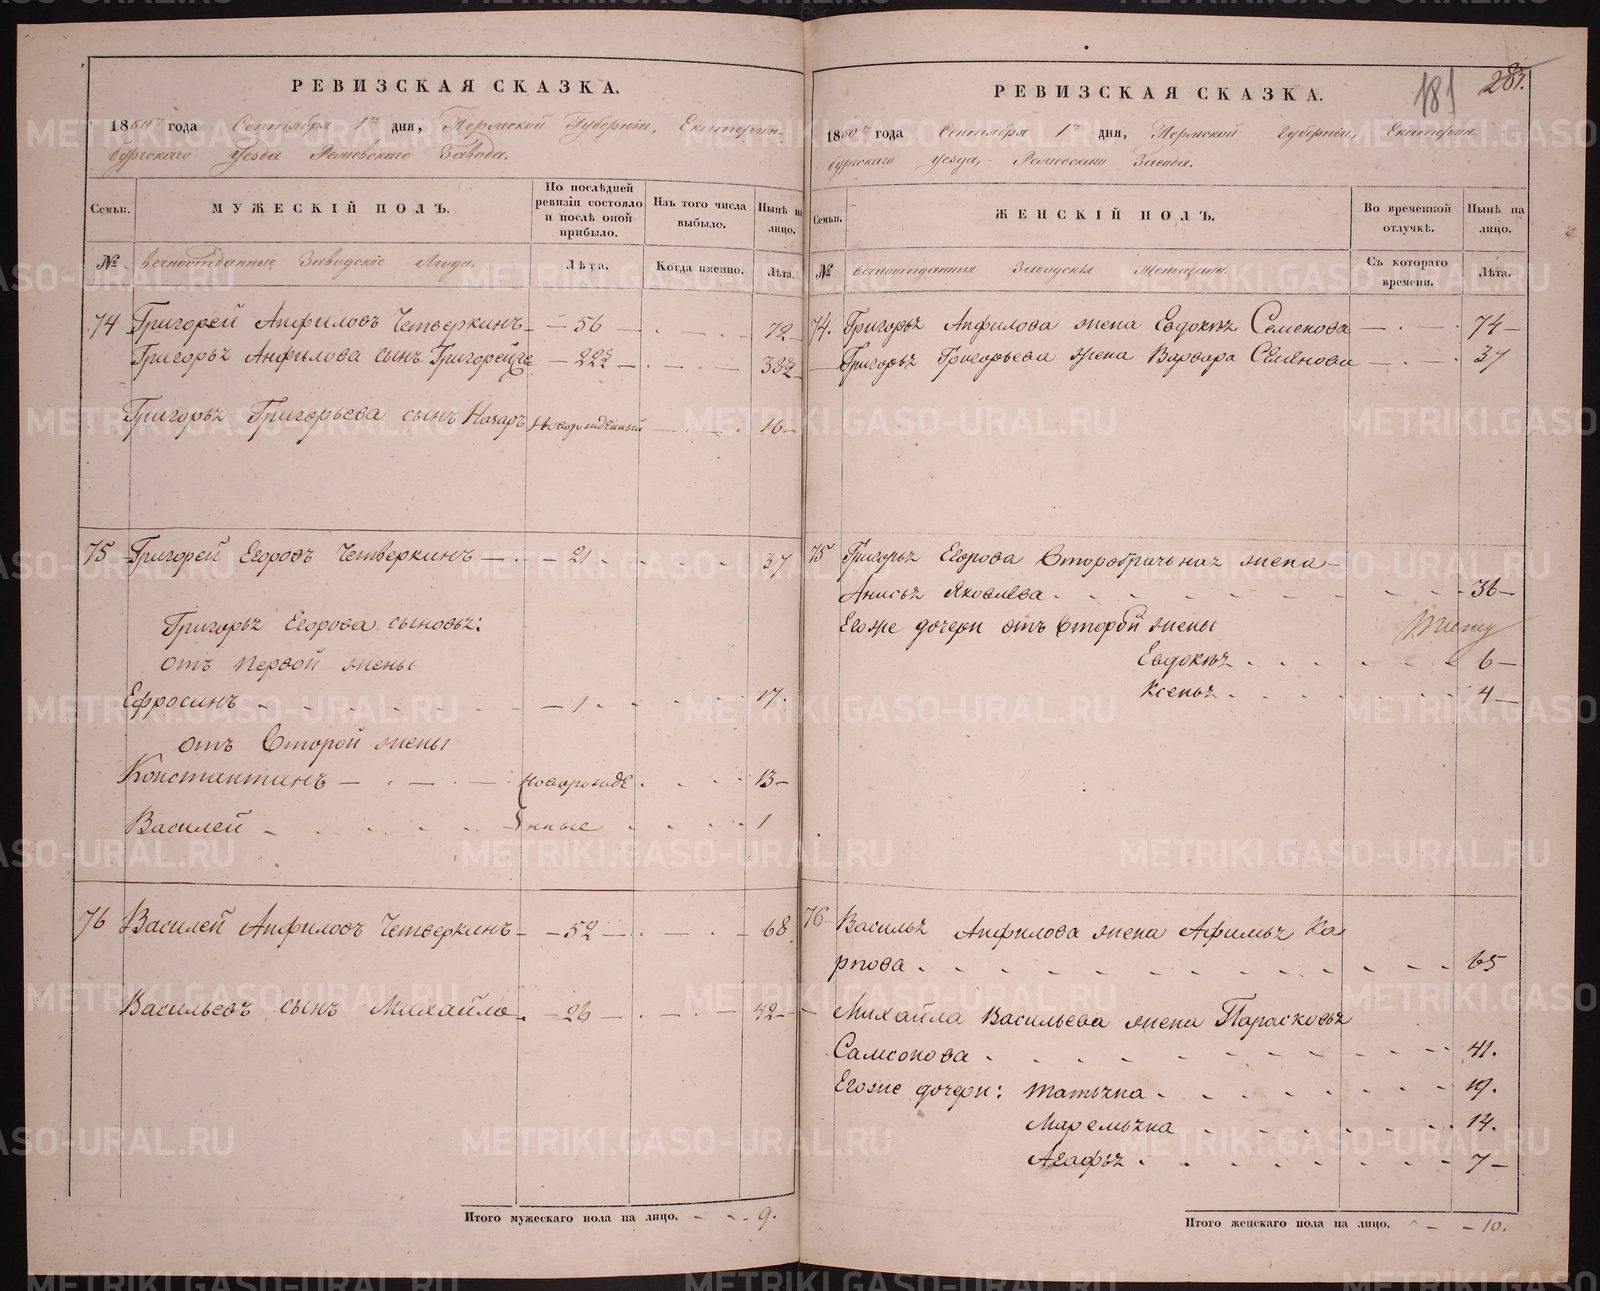 РЕВИЗСКАЯ СКАЗКА.
1850го года Сентября 1го дня, Пермской Губернiи, Екатерин-
бургскаго Уезда Режевскаго Завода.
Семьи.
МУЖЕСКIЙ ПОЛЪ.
По послѣдней ревизiи состояло и послѣ оной прибыло.
Изъ того числа выбыло.
Нынѣ на лицо.
№
вечноотданные Заводскiе Люди.
Лѣта.
Когда именно.
Лѣта.
74 Григорей Анфиловъ Четверкинъ 56 72
Григорья Анфилова сынъ Григорей
Григорья Григорьева сынъ Назаръ новорожденный 16
75 Григорей Егоровъ Четверкинъ 21 37
Григорья Егорова сыновья:
отъ первой жены
Ефросинъ 1 17.
отъ Второй жены
Константинъ новорожде 13
Василей нные 1
76 Василей Анфиловъ Четверкинъ 52 68
Васильевъ сынъ Михайло 26 42
Итого мужескаго пола на лицо. 9.
181 283.
РЕВИЗСКАЯ СКАЗКА.
1850го года Сентября 1го дня, Пермской губернiи, Екатерин
бургскаго уезда, Режевскаго Завода.
Семьи.
ЖЕНСКIЙ ПОЛЪ.
Во временной отлучкѣ.
Нынѣ на лицо.
№
вечноотданныя Заводскiя Женщины.
Съ котораго времени.
Лѣта.
74. Григорья Анфилова жена Евдокья Семенова 74
Григорья Григорьева жена Варвара Семенова 37
75 Григорья Егорова Второбрачьная жена
Анисья Яковлева 36
Егоже дочери отъ Второй жены
Евдокья 6
Ксенья 4
76 Василья Анфилова жена Афимья Ка
рпова 65
Михайла Васильева жена Парасковья
Самсонова 41.
Егоже дочери: Татьяна 19.
Маремьяна 14.
Агафья 7
Итого женскаго пола на лицо. 10.
METRIKI.GASO-URAL.RU